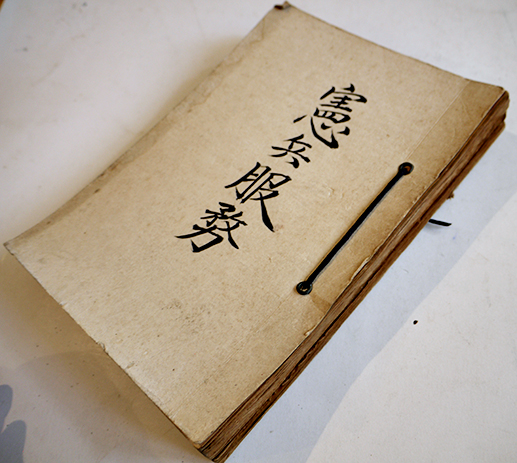 憲兵服務